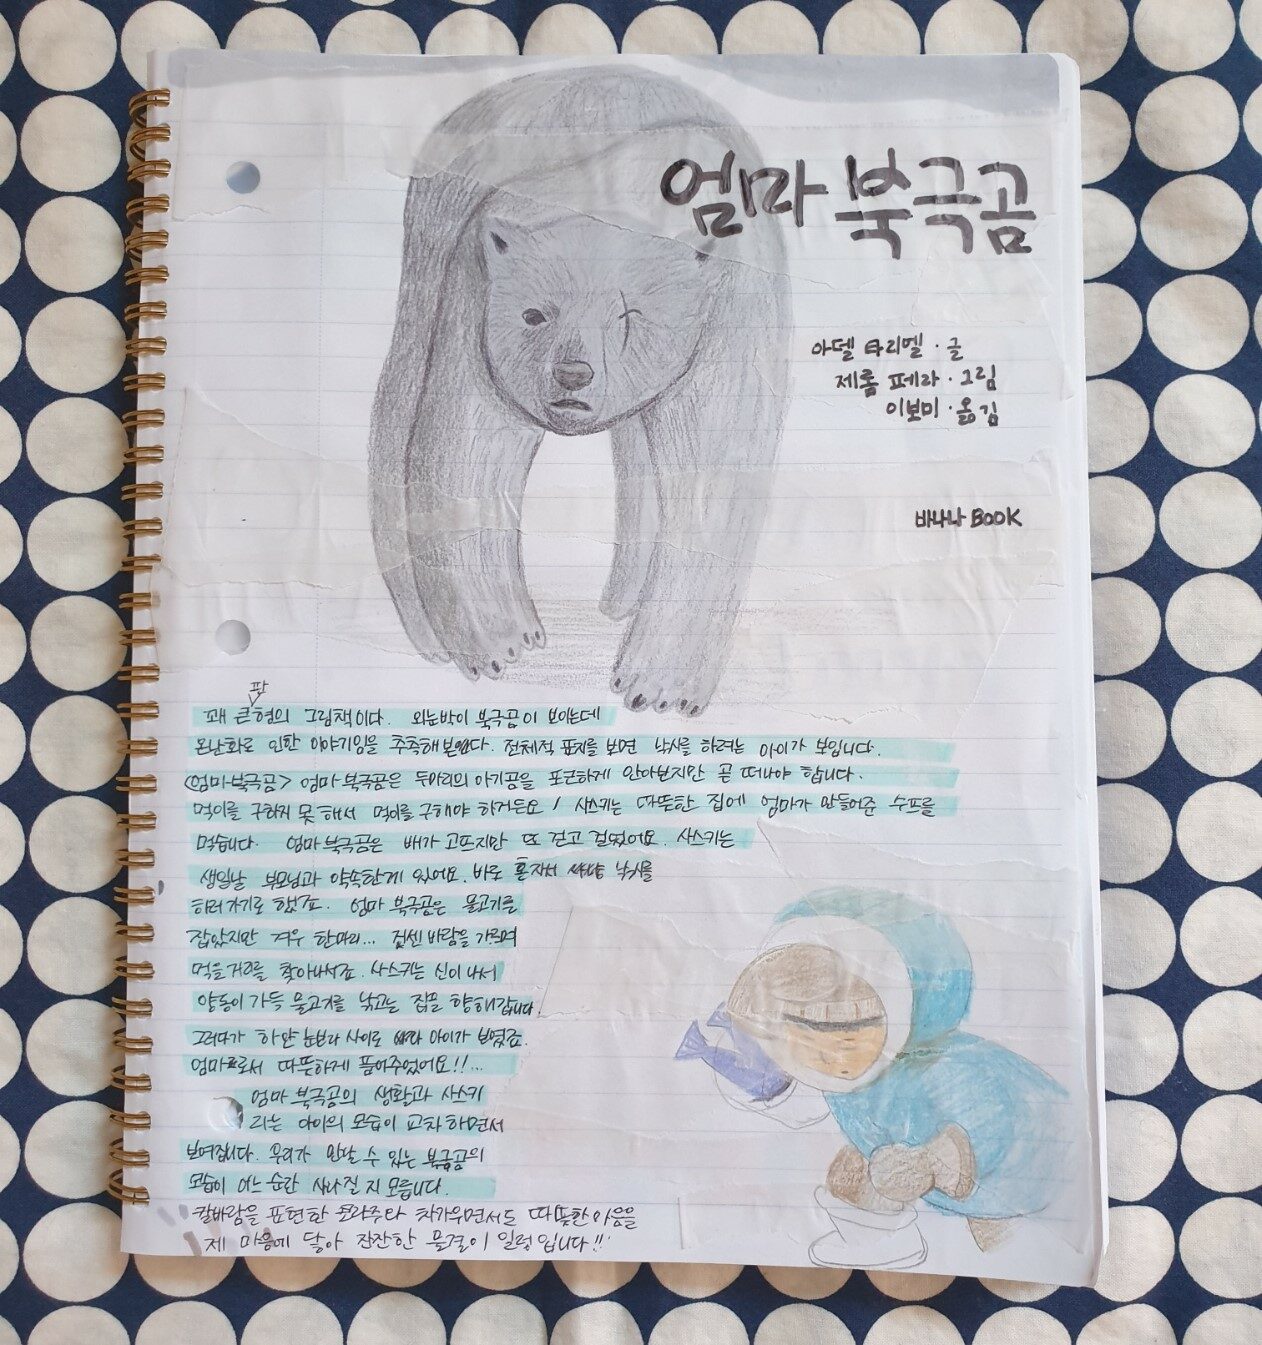 엄마 북극곰
아델 타리엘 · 글
제롬 페라 · 그림
이보미 · 옮김
바나나 BOOK
판
꽤 큰형의 그림책이다. 외눈박이 북극곰이 보이는데
온난화로 인한 이야기임을 추측해본었다. 전체적 표지를 보면 낚시를 하려는 아이가 보입니다.
<엄마북극곰> 엄마 북극곰은 두마리의 아기곰을 포근하게 안아보지만 곧 떠나야 합니다.
먹이를 구하지 못해서 먹이를 구해야 하거든요 / 사스키는 따뜻한 집에 엄마가 만들어준 수프를
먹습니다. 엄마북극곰은 배가 고프지만 또 걷고 걸었어요. 사스키는
생일날 부모님과 약속한게 있어요. 바로 혼자서 낚시를
하러 가기로 했죠. 엄마 북극곰은 물고기를
잡았지만 겨우 한마리... 짚센 바람을 가르며
먹을거리를 찾아나서죠. 사스키는 신이나서
양동이 가득 물고기를 낚고는 집을 향해갑니다.
그러다가 하얀 눈보라 사이로 아이가 보였죠.
엄마로서 따뜻하게 품어주었어요!!...
엄마 북극곰의 생활과 사스키
라는 아이의 모습이 교차하면서
보여집니다. 우리가 만날 수 있는 북극곰의
모습이 어느 순간 사라질지 모릅니다.
칼바람을 표현한 차가우면서도 따뜻한 마음을
제 마음에 닿아 잔잔한 물결이 일렁입니다!!